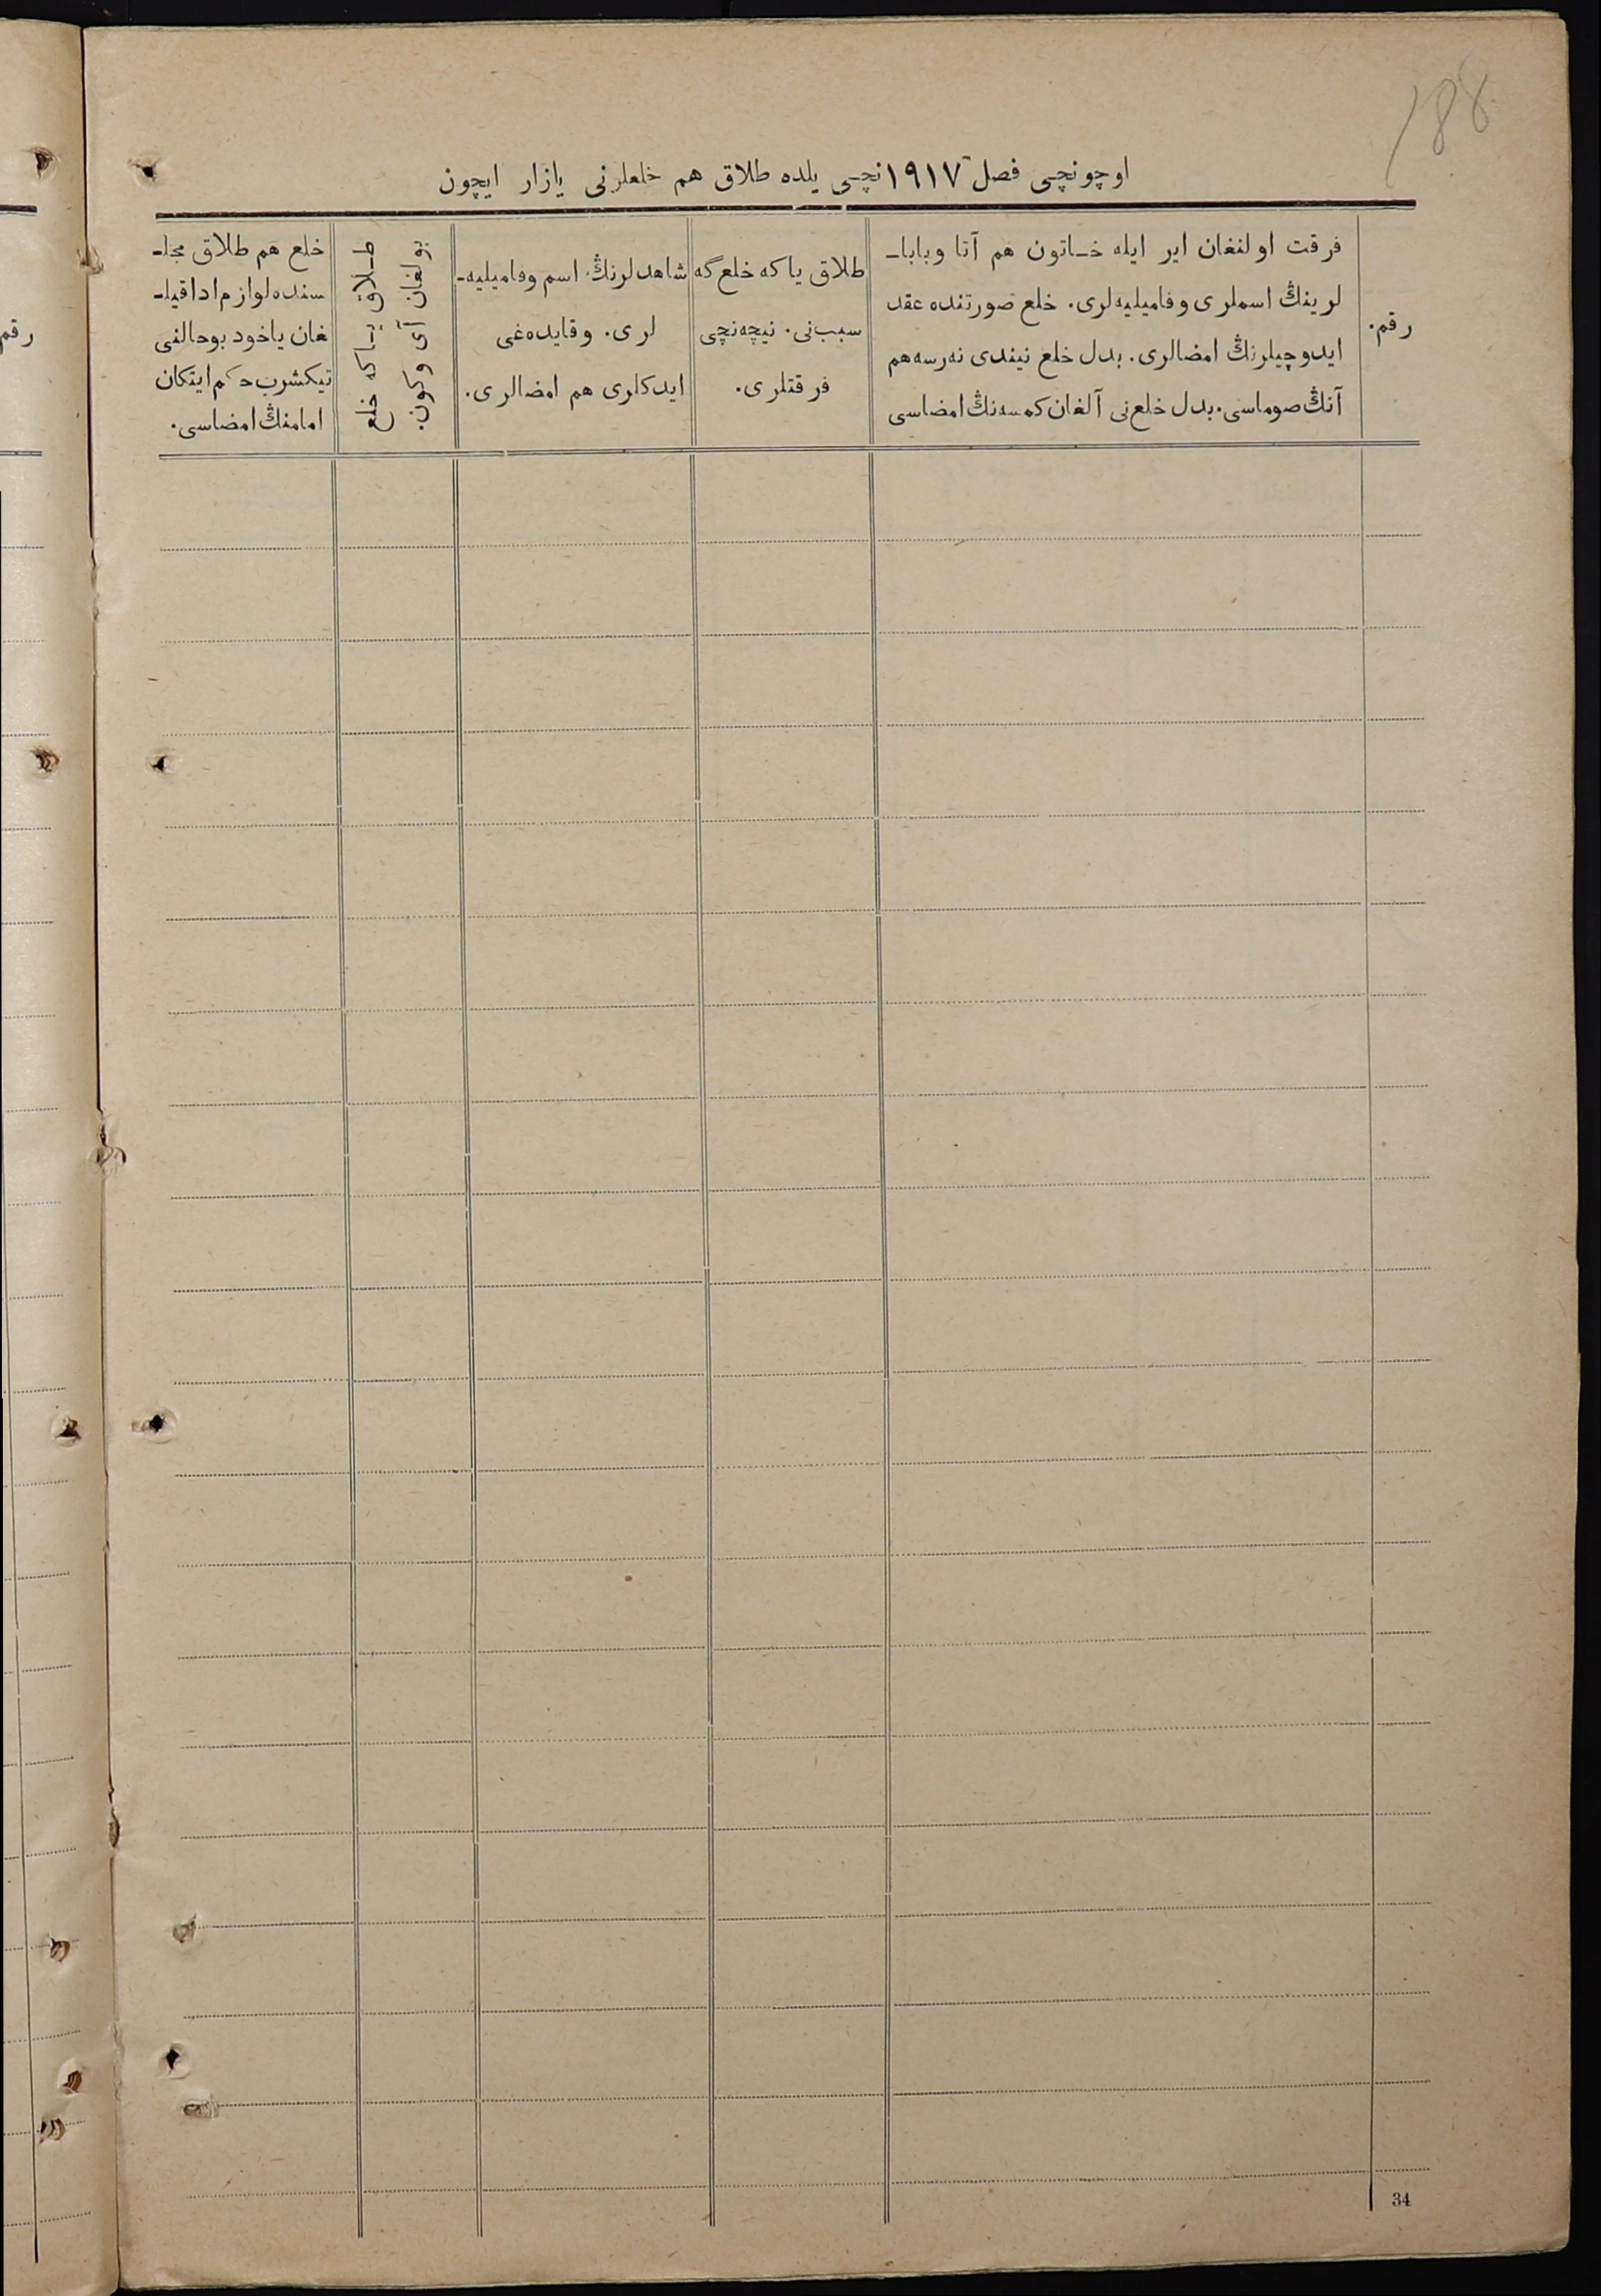 188
اوچونچی فصل ١٩١٧نچی یلده طلاق هم خلعلرنی یازار ایچون
رقم.
فرقت اولنغان ایر ایله خاتون هم آتا وبابا-
لرینڭ اسملری وفامیلیه‌لری. خلع صورتنده عقد
ایدوچیلرنڭ امضالری. بدل خلع نیندی نه‌رسه‌هم
آنڭ صوماسی. بدل خلع‌نی آلغان کمسه‌نڭ امضاسی
طلاق یاکه خلع‌گه
سبب‌نی. نیچه‌نچی
فرقتلری.
شاهدلرنڭ اسم وفامیلیه-
لری. وقایده‌غی
ایدکلری هم امضالری.
طلاق یاکه خلع
بولغان آی وکون.
خلع هم طلاق مجل-
سنده لوازم ادا قیل-
غان یاخود بوحالنی
تیکشروب حکم ایتکان
امامنڭ امضاسی.
رقم
34